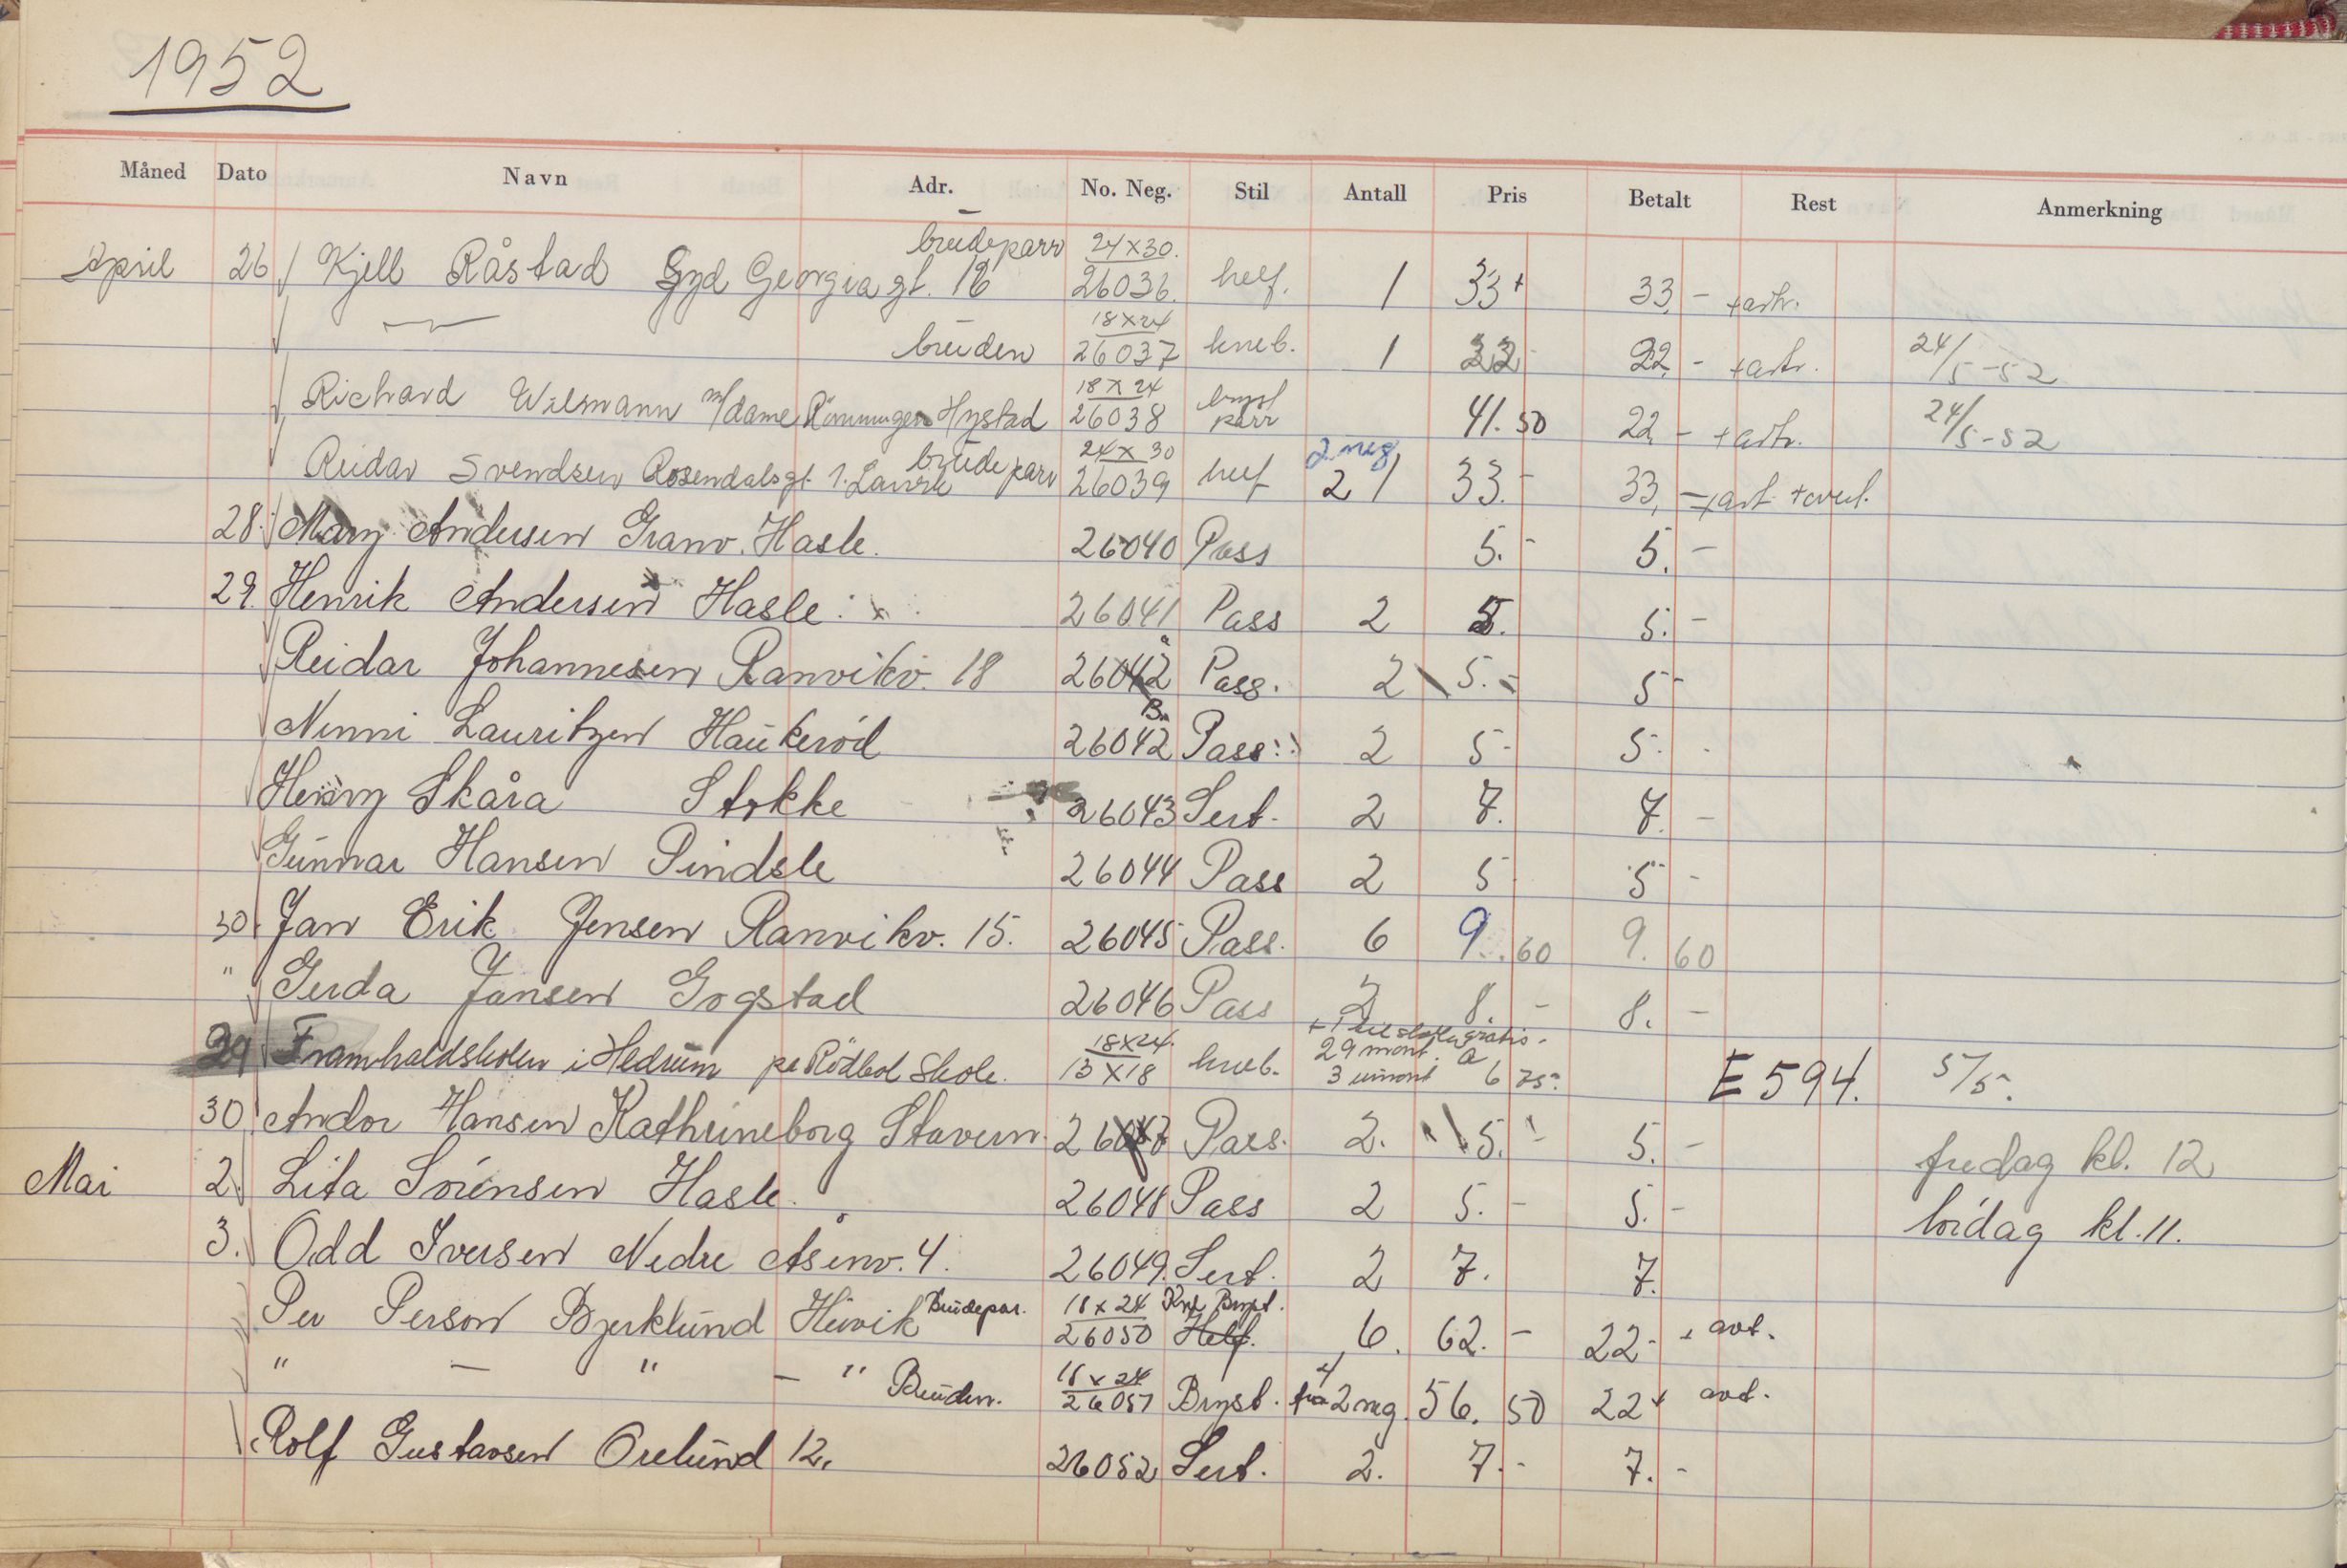 1952
Måned Dato Navn Adr. No. Neg. Stil Antall Pris Betalt Rest Anmerkning
brudeparr 24x30.
April 26 Kjell Råstad Gyd Georgiagt. 26036. helf. 1 33 33 -
18x24
bruden 26037 kneb. 1 22 22 - 24/5-52
18x24 bryst
Richard Wilmann m/dame Hystad 26038 parr 41.50 22 - 24/5-52
brudeparr 24x30 2 neg
Reidar Svendsen Rosendalsgt. 1. 26039 helf 2 1 33.- 33,-
28. Mary Andersen Granv. Hasle. 26040 Pass 5.- 5.-
29. Henrik Andersen Hasle 26041 Pass 2 5. 5.-
Reidar Johannesen Ranvikv. 18 26042 a Pass. 2 5.- 5-
Ninni Lauritzen Haukeröd 26042 B. Pass 2 5- 5-
Henry Skåra Stokke 26043 Sert. 2 7. 7.-
Gunnar Hansen Pindsle 26044 Pass 2 5 5-
30. Jan Erik Jensen Ranvikv. 15. 26045 Pass. 6 9.60 9.60
" Gerda Jansen Gogstad 26046 Pass 2 8.- 8.-
18x24. gratis.
29 Framhaldskolen i Hedrum på Rödbol Skole. 13x18 kneb. 29 mont. a
3 umont 6 75. E 594. 5/5.
30 Andor Hansen Kathrineborg Stavern. 26047 Pass. 2. 5.- 5.- fredag kl. 12
Mai 2. Lita Sörensen Hasle. 26048 Pass 2 5.- 5.- lördag kl. 11.
3. Odd Iversen Nedre Åsenv. 4. 26049. Sert. 2 7. 7.
Brudepar. 18x24 Kne Bryst.
Per Person Bjerklund Huvik 26050 Helf. 6. 62.- 22- + avt.
18x24 4
" - " - " Bruden. 26051 Bryst. fra 2 neg. 56.50 22+ avt.
Rolf Gustavsen Orelund 12. 26052 Sert. 2. 7.- 7.-